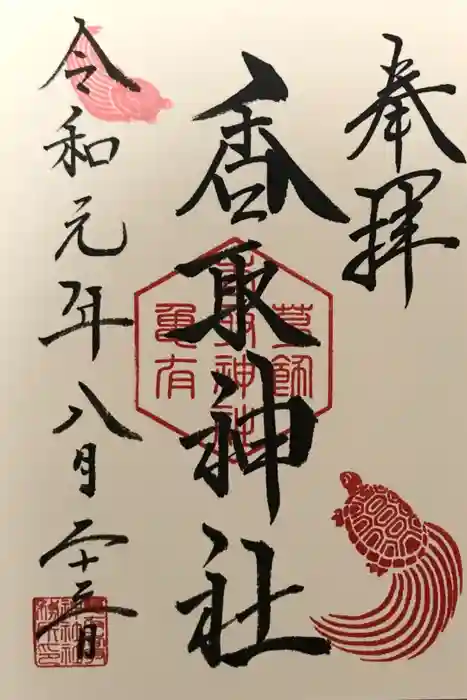 奉拝
葛飾
香取神社
香取神社
亀有
令和元年八月二十三日